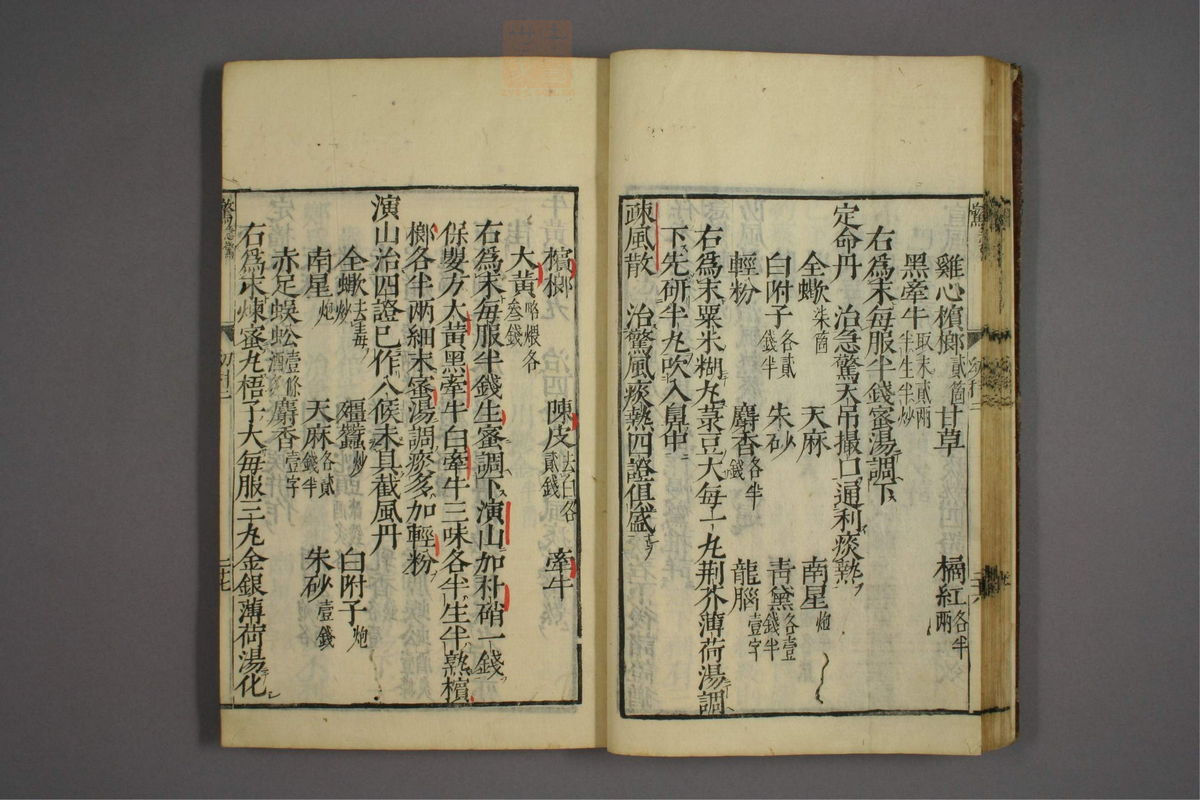 雞心檳榔貳箇 甘草 橘紅各半兩
黑牽牛取末貳兩半生半炒
右爲末每服半錢蜜湯調下
定命丹 治急驚天吊撮口通利痰熱
全蠍柒箇 天麻 南星炮
白附子各貳錢半 朱砂 青黛各壹錢半
輕粉 麝香各半錢 龍腦壹字
右爲末粟米糊丸菉豆大每一丸荆芥薄荷湯調
下先研半丸吹入鼻中
疎風散 治驚風痰熱四證俱盛
檳榔 陳皮去白各貳錢 牽牛
大黃略煨各叁錢
右爲末每服半錢生蜜調下演山加朴硝一錢
保嬰方大黃黑牽牛白牽牛三味各半生半熟檳
榔各半兩細末蜜湯調痰多加輕粉
演山治四證已作八候未具截風丹
全蠍去毒炒 殭蠶炒 白附子炮
南星炮 天麻各貳錢半 朱砂壹錢
赤足蜈蚣壹條酒 麝香壹字
右爲末煉蜜丸梧子大每服三丸金銀薄荷湯化